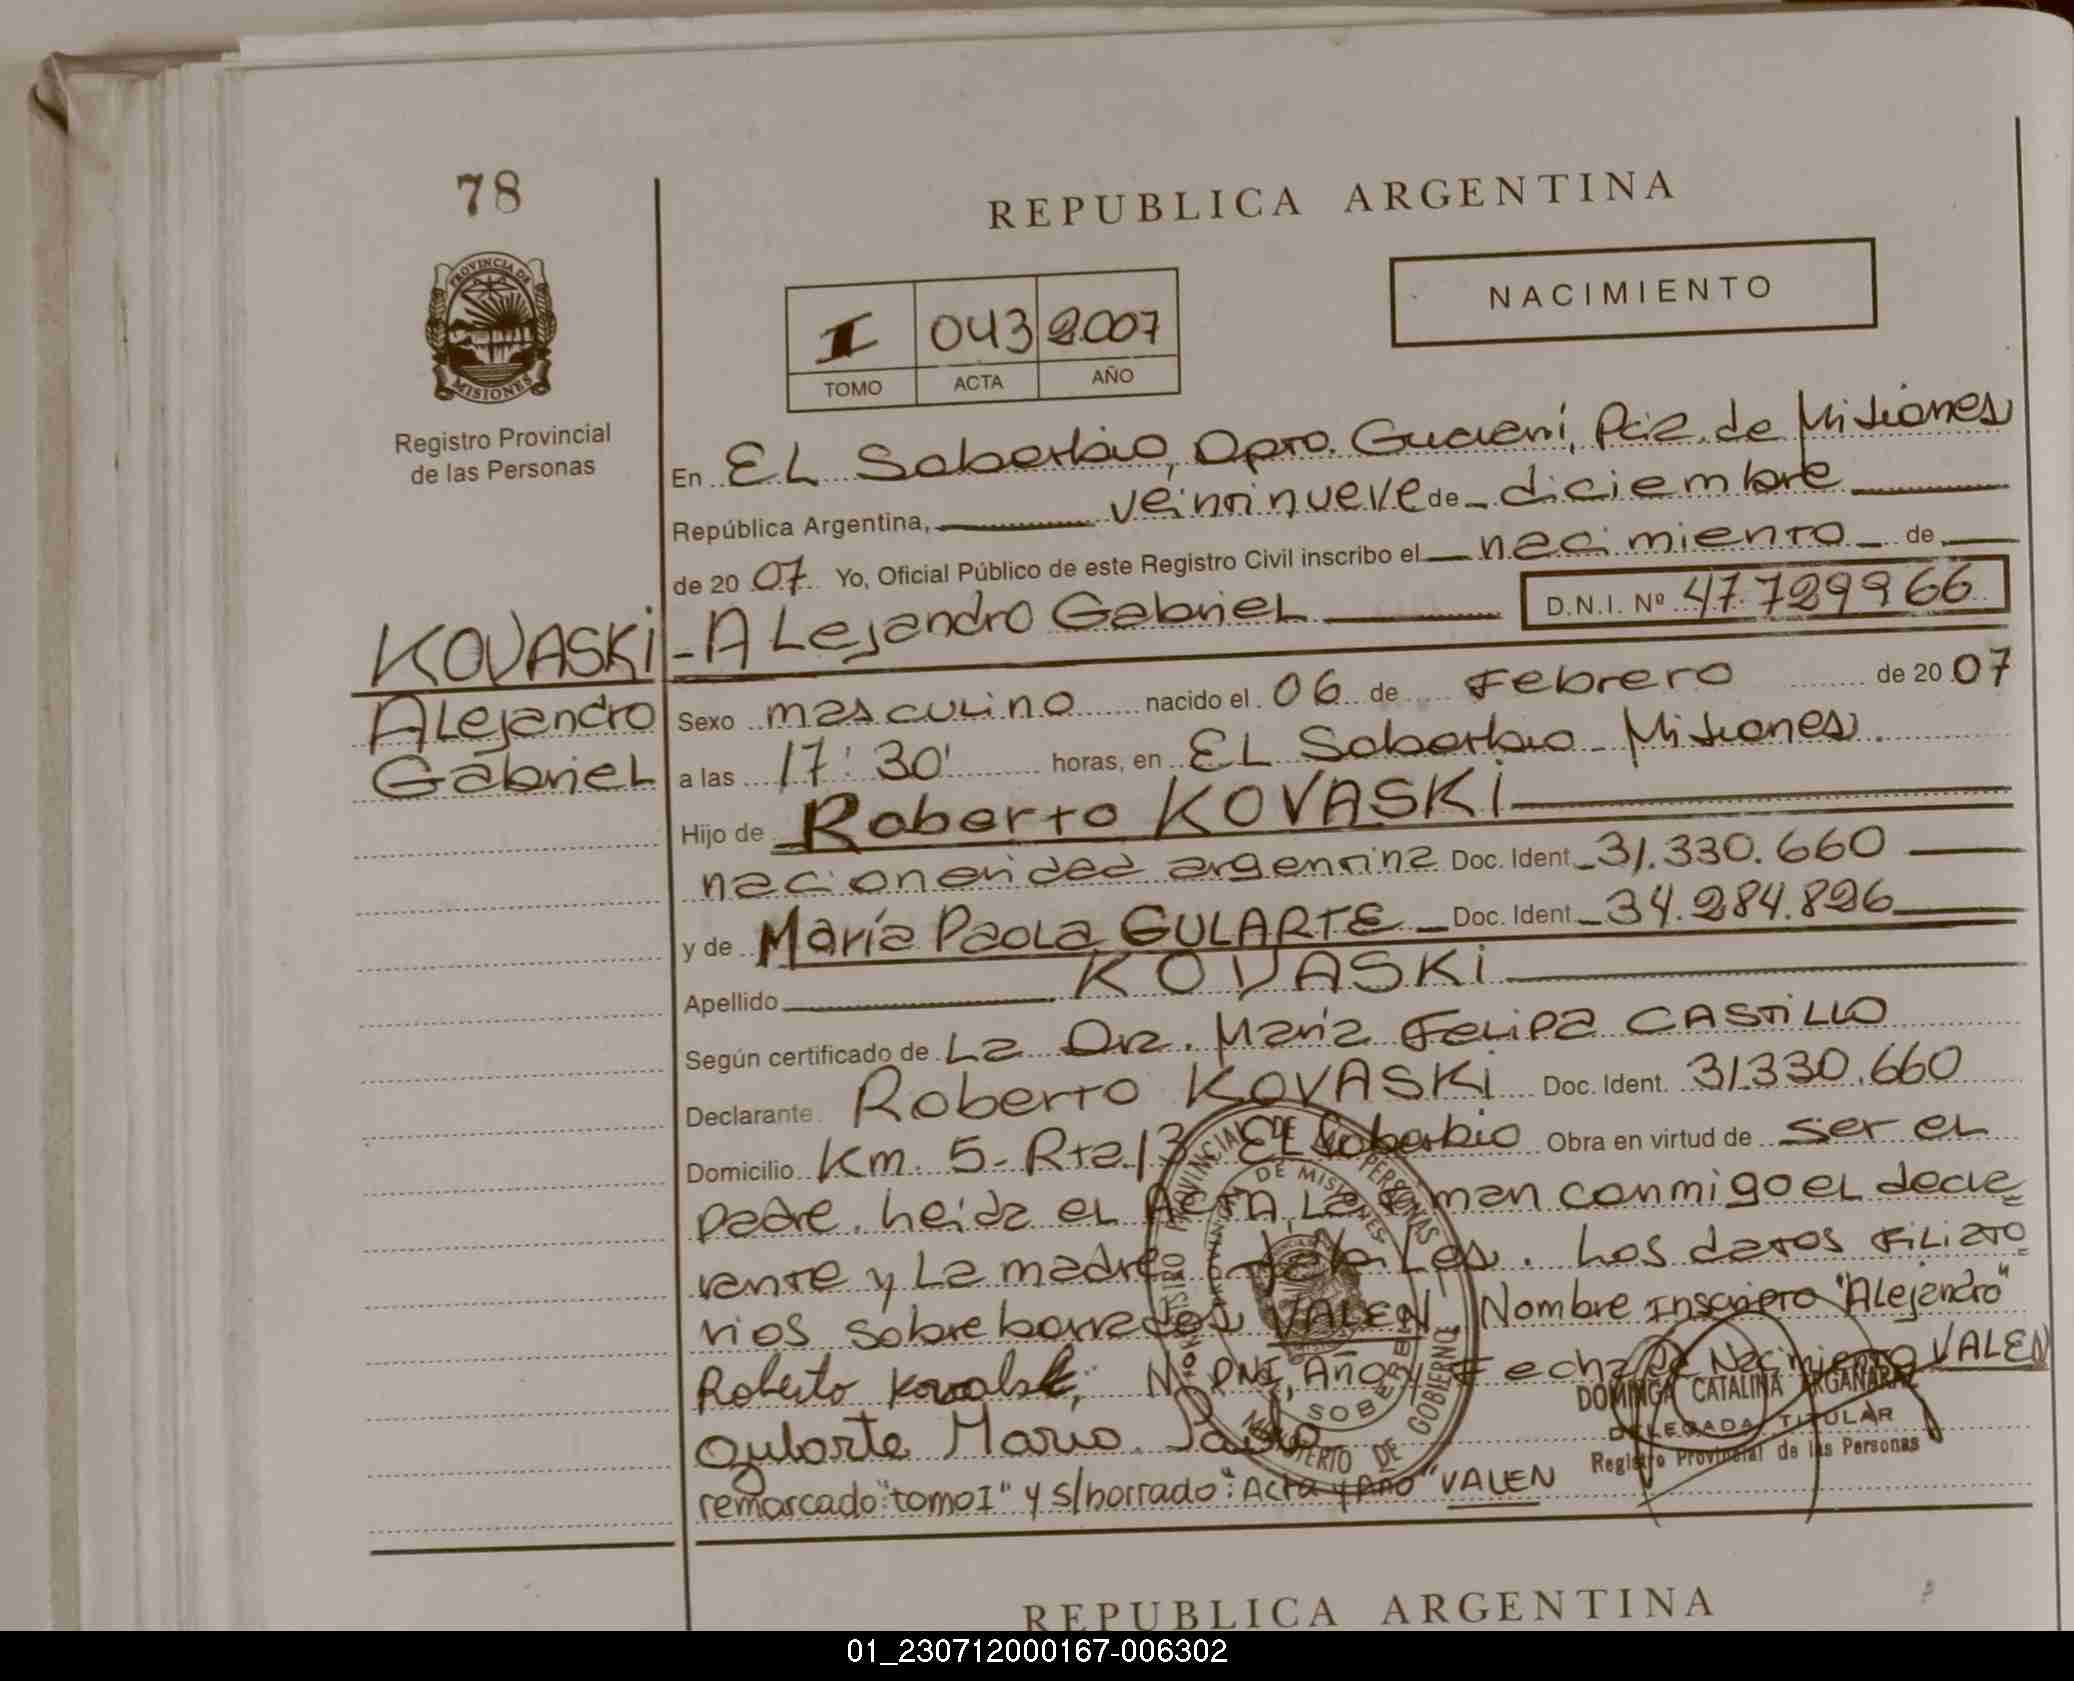 78
REPUBLICA ARGENTINA
NACIMIENTO
PROVINCIA DE
MISIONES
Registro Provincial
de las Personas
I 043 2007
TOMO ACTA AÑO
En EL Soberbio, Dpto. Guaraní, Pcia. de Misiones
República Argentina, veintinueve de diciembre
de 2007 Yo, Oficial Público de este Registro Civil inscribo el nacimiento de
KOVASKi - ALejandro GabrieL D.N.I. Nº 47.729966
ALejandro
GabrieL
Sexo masculino nacido el 06 de Febrero de 2007
a las 17:30' horas, en EL Soberbio - Misiones.
Hijo de Roberto KOVASKi
nacionalidad argentina Doc. Ident 31.330.660
y de María PaoLa GULARTE Doc. Ident 34.284.826
Apellido KOVASKi
Según certificado de La Dra. María FeLipa CASTiLLO
Declarante Roberto KOVASKi Doc. Ident. 31.330.660
Domicilio Km. 5 - Rta 13 EL Soberbio Obra en virtud de ser eL
padre. Leída eL ACTA, La firman conmigo eL decla
rante y La madre Los datos FiLiato
rios sobreborrados VALEN, Nombre Inscripto "ALejandro"
Roberto Nº DNI, Año y Fecha de Nacimiento VALEN
Gularte María Paola
remarcado "tomo I" y s/borrado: "Acta y Año" VALEN
DOMINGA CATALINA ARGAÑARAZ
DELEGADA TITULAR
Registro Provincial de las Personas
REPUBLICA ARGENTINA
01_230712000167-006302